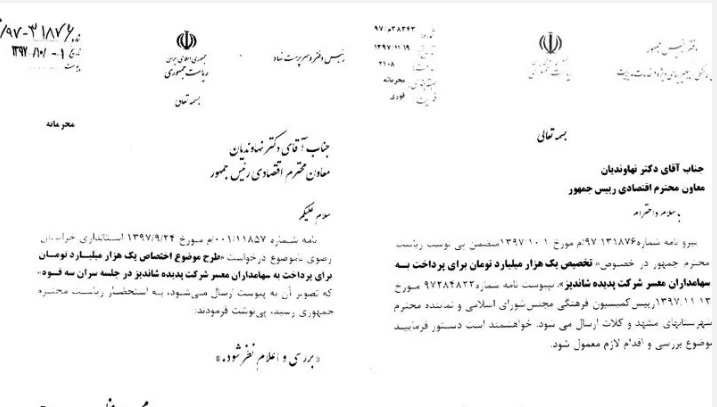 دفتر رئیس جمهور
شماره: ۹۷/م/۳۸۳۴۳
تاریخ: ۱۳۹۷/۱۱/۱۹
۲۱۰۸
محرمانه
فوری
بسمه تعالی
جناب آقای دکتر نهاوندیان
معاون محترم اقتصادی رییس جمهور
با سلام و احترام
پیرو نامه شماره ۹۷/۱۳۱۸۷۶/م مورخ ۱۳۹۷/۱۰/۱ متضمن پی نوشت ریاست
محترم جمهور در خصوص «تخصیص یک هزار میلیارد تومان برای پرداخت به
سهامداران معسر شرکت پدیده شاندیز»، بپیوست نامه شماره ۹۷۲۸۴۸۲۲ مورخ
۱۳۹۷/۱۱/۱۳ رییس کمیسیون فرهنگی مجلس شورای اسلامی و نماینده محترم
شهرستانهای مشهد و کلات ارسال می شود. خواهشمند است دستور فرمایید
موضوع بررسی و اقدام لازم معمول شود.
رئیس دفتر و سرپرست نهاد
جمهوری اسلامی ایران
ریاست جمهوری
۹۷-۳۱۸۷۶
۱۳۹۷/۱۰/۰۱
بسمه تعالی
محرمانه
جناب آقای دکتر نهاوندیان
معاون محترم اقتصادی رئیس جمهور
سلام علیکم
نامه شماره ۰۰۱/۱۱۸۵۷/م مورخ ۱۳۹۷/۹/۲۴ استانداری خراسان
رضوی باموضوع درخواست «طرح موضوع اختصاص یک هزار میلیارد تومان
برای پرداخت به سهامداران معسر شرکت پدیده شاندیز در جلسه سران سه قوه»
که تصویر آن به پیوست ارسال می‌شود، به استحضار ریاست محترم
جمهوری رسید، پی‌نوشت فرمودند:
«بررسی و اعلام نظر شود.»